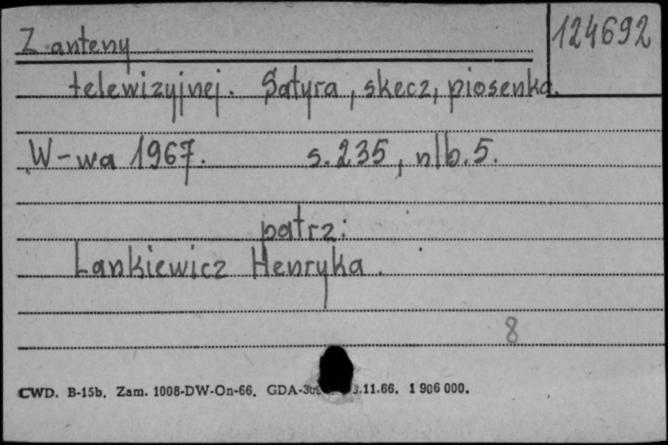 Z anteny
124692
telewizyjnej. Satyra, skecz, piosenka.
W-wa 1967. s. 235, nlb. 5.
patrz:
Lankiewicz Henryka.
8
CWD. B-15b. Zam. 1008-DW-On-66. .11.66. 1 906 000.